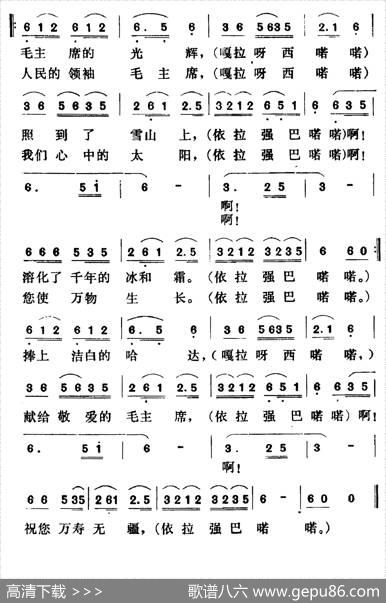 6 1 2 6 1 2 6. 5 6 3 6 5 6 3 5 2. 1 6
毛主席的 光 辉,(嘎拉呀西 喏喏)
人民的领袖 毛 主 席,(嘎拉呀西 喏喏)
3 6 5 6 3 5 2 6 1 2. 5 3 2 1 2 6 5 1 6 6 3 5
照 到 了 雪山 上,(依拉强巴喏喏)啊!
我们 心 中的 太 阳,(依拉强巴喏喏)啊!
6. 5 1 6 - 3. 2 5 3 -
啊!
啊!
6 6 6 5 3 5 2 6 1 2. 5 3 2 1 2 3 2 3 5 6 6 0
溶化了 千年的 冰和 霜。(依拉强巴 喏 喏。)
您使 万物 生 长。(依拉强巴 喏 喏。)
6 1 2 6 1 2 6. 5 6 3 6 5 6 3 5 2. 1 6
捧上 洁白的 哈 达,(嘎拉呀西 喏喏,)
3 6 5 6 3 5 2 6 1 2. 5 3 2 1 2 6 5 1 6 6 3 5
献给 敬 爱的 毛主 席,(依拉 强巴 喏喏)啊!
6. 5 1 6 - 3. 2 5 3 -
啊!
6 6 5 3 5 2 6 1 2. 5 3 2 1 2 3 2 3 5 6 - 6 0 0
祝您 万寿 无 疆,(依拉 强巴 喏 喏。)
高清下载 >>> 歌谱八六 www.gepu86.com